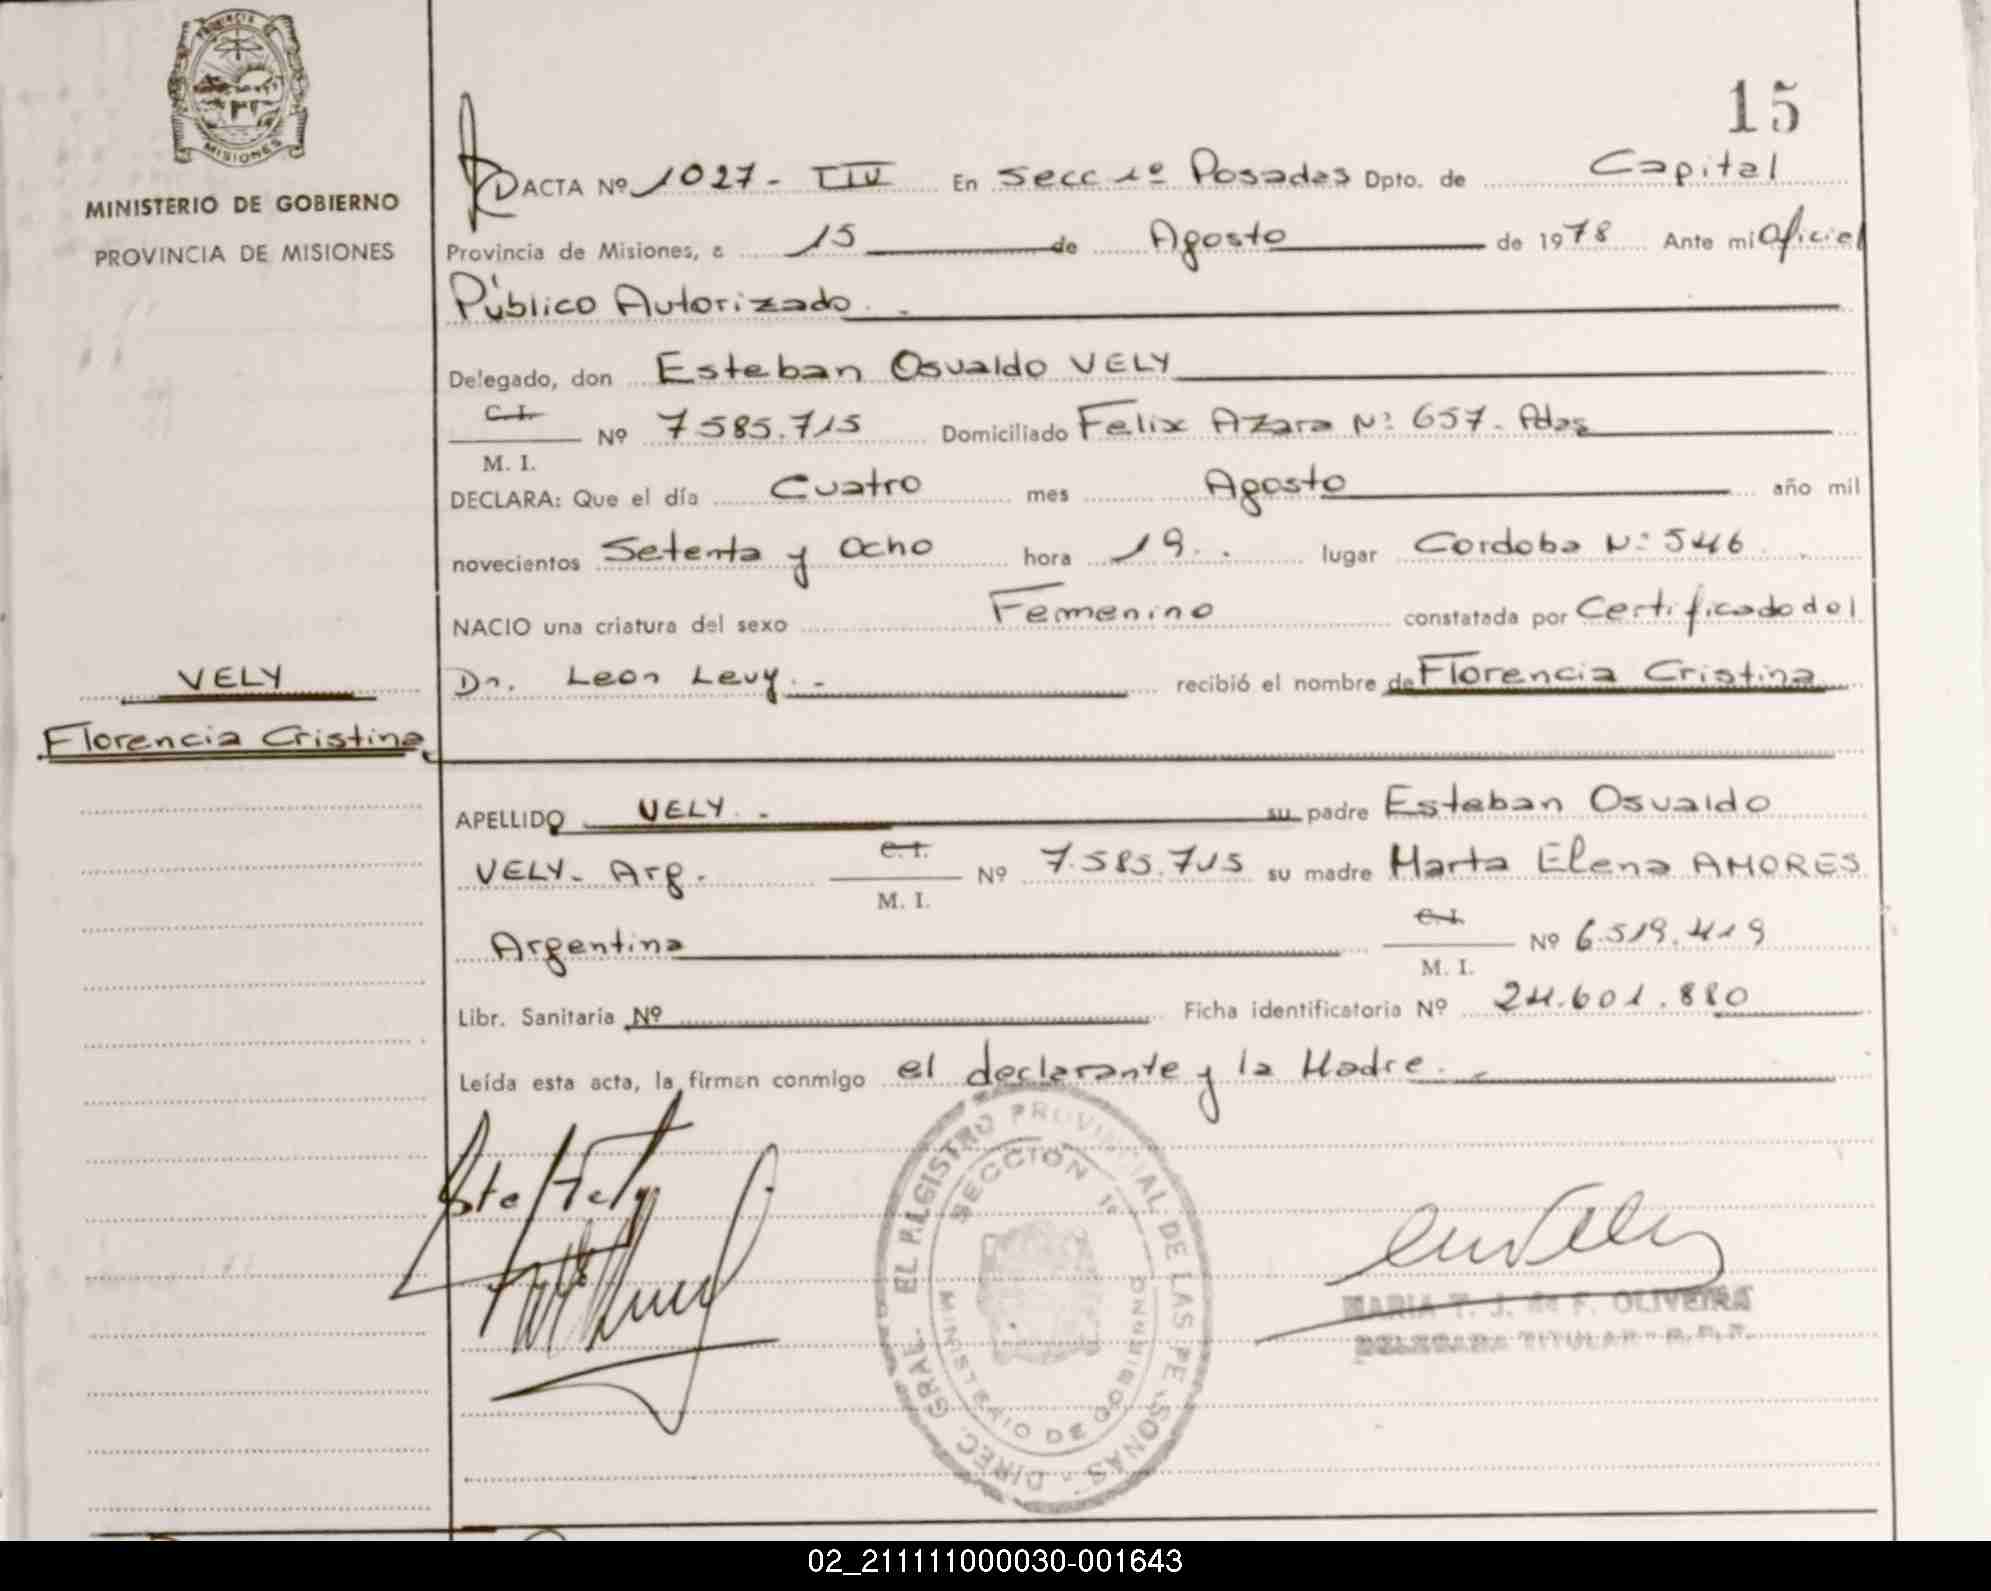 PROVINCIA DE
MISIONES
MINISTERIO DE GOBIERNO
PROVINCIA DE MISIONES
15
ACTA Nº 1027- TIV En Secc 1º Posadas Dpto. de Capital
Provincia de Misiones, a 15 de Agosto de 1978 Ante mi Oficial
Público Autorizado.-
Delegado, don Esteban Osvaldo VELY
C. I.
Nº 7585.715 Domiciliado Felix Azara Nº 657. Pdas
M. I.
DECLARA: Que el día Cuatro mes Agosto año mil
novecientos Setenta y Ocho hora 19.. lugar Cordoba Nº 546
NACIO una criatura del sexo Femenino constatada por Certificado del
VELY
Dr. Leon Levy.- recibió el nombre de Florencia Cristina
Florencia Cristina
APELLIDO VELY.- su padre Esteban Osvaldo
C. I.
VELY- Arg. Nº 7.585.715 su madre Marta Elena AMORES
M. I.
C. I.
Argentina Nº 6.519.419
M. I.
Libr. Sanitaria Nº Ficha identificatoria Nº 24.601.880
Leída esta acta, la firman conmigo el declarante y la Madre.-
DIREC. GRAL. EL REGISTRO PROVINCIAL DE LAS PERSONAS
SECCION 1ª
MINISTERIO DE GOBIERNO
MARIA T. J. de F. OLIVEIRA
DELEGADA TITULAR - R.P.P.
02_211111000030-001643